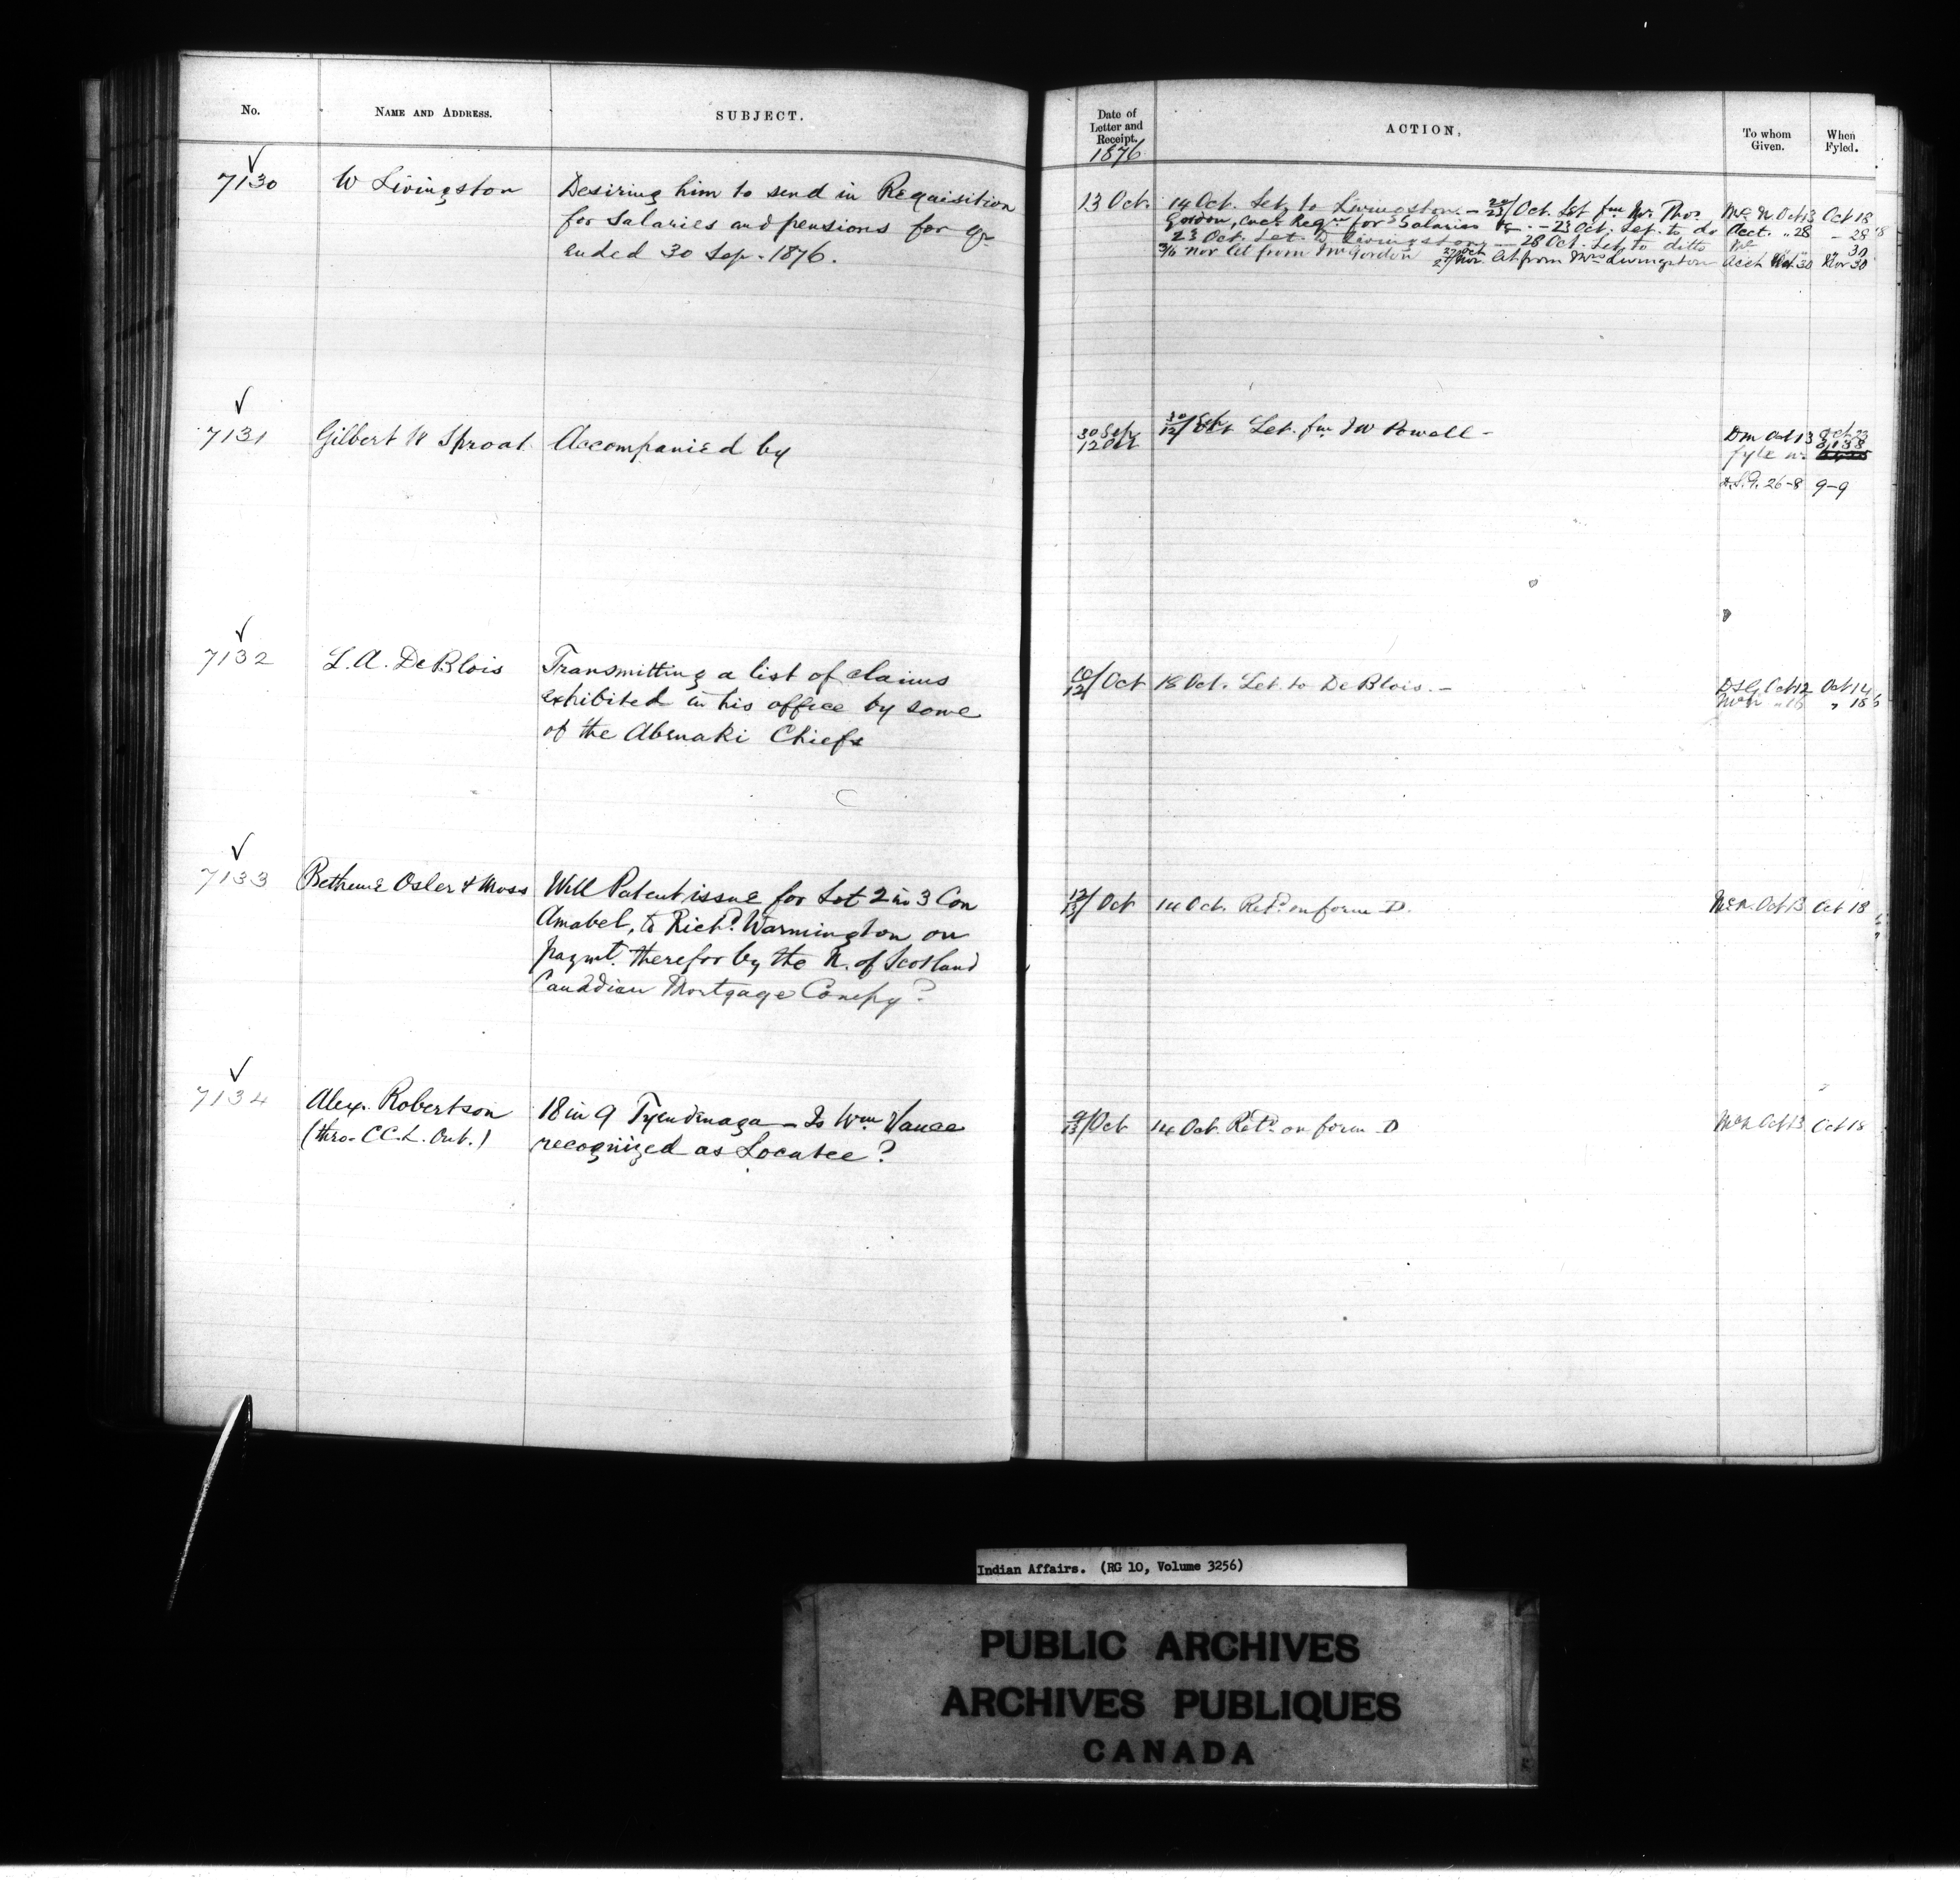 No.
NAME AND ADDRESS.
SUBJECT.
7130
W Livingston
Desiring him to send in Requisition
for Salaries and pensions for qr
ended 30 Sep. 1876.
7131
Gilbert W Sproat
Accompanied by
7132
L. A. DeBlois
Transmitting a list of claims
exhibited in his office by some
of the Abenaki Chiefs
7133
Bethune Osler & Moss
Will Patent issue for Lot 2 in 3 Con
Amabel, to Richd. Warmington on
paymt. therefor by the N. of Scotland
Canadian Mortgage Compy?
7134
Alex. Robertson
(thro. C.C.L. Ont.)
18 in 9 Tyendinaga - Is Wm Vance
recognized as Locatee?
Date of
Letter and
Receipt.
1876
ACTION.
To whom
Given.
When
Fyled.
13 Oct.
14 Oct. Let. to Livingston. - 20/23 Oct. Let fm Mr Thos.
Gordon, encl Reqn for Salaries &c. - 23 Oct. Let. to do
23 Oct. Let. to Livingston - 28 Oct. Let. to ditto
Nov Let from Mr Gordon Let from Mrs Livingston
McN Oct 13 Oct 18
Acct. " 28 - 28
Acct 30 Nov 30
30 Sep
12 Oct
Let. fm I W Powell -
Dm Oct 13 Oct 23
fyle no. 3,138
D.S.G. 26-8 9-9
10/12 Oct
18 Oct. Let. to DeBlois. -
DSG Oct 12 Oct 14
McN " 16 " 18
12/13 Oct
14 Oct. Retd. on form D.
McN. Oct 13 Oct 18
9/13 Oct
14 Oct. Retd. on form D
McN Oct 13 Oct 18
Indian Affairs. (RG 10, Volume 3256)
PUBLIC ARCHIVES
ARCHIVES PUBLIQUES
CANADA